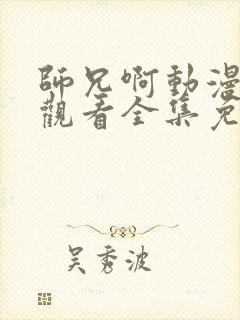 師兄啊動漫
觀看全集免
吴秀波